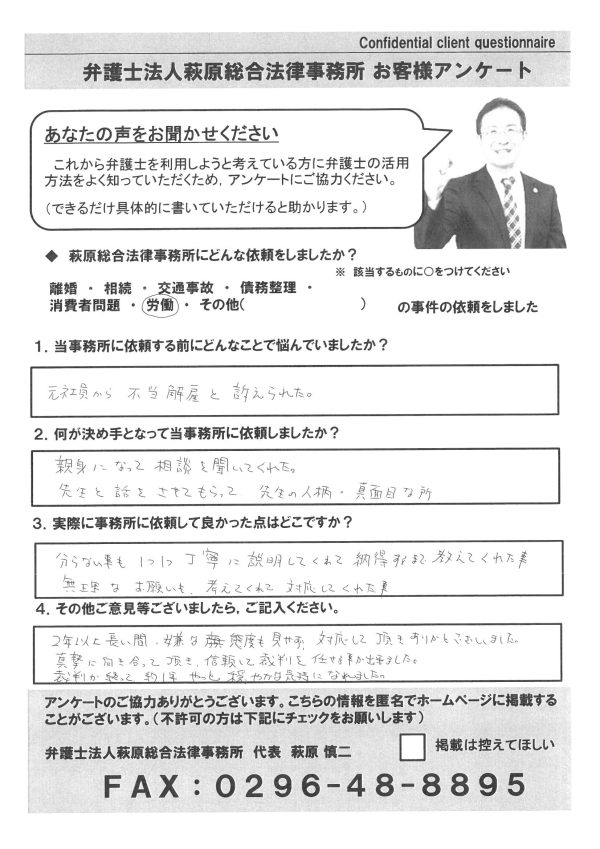 Confidential client questionnaire
弁護士法人萩原総合法律事務所 お客様アンケート
あなたの声をお聞かせください
これから弁護士を利用しようと考えている方に弁護士の活用
方法をよく知っていただくため，アンケートにご協力ください。
（できるだけ具体的に書いていただけると助かります。）
◆ 萩原総合法律事務所にどんな依頼をしましたか？
※ 該当するものに○をつけてください
離婚 ・ 相続 ・ 交通事故 ・ 債務整理 ・
消費者問題 ・ 労働 ・ その他( ) の事件の依頼をしました
１．当事務所に依頼する前にどんなことで悩んでいましたか？
元社員から 不当解雇と 訴えられた。
２．何が決め手となって当事務所に依頼しましたか？
親身になって 相談を聞いてくれた。
先生と話をさせてもらって 先生の人柄・真面目な所
３．実際に事務所に依頼して良かった点はどこですか？
分らない事も 1つ1つ 丁寧に説明してくれて 納得するまで教えてくれた事
無理な お願いも、考えてくれて 対応してくれた事
４．その他ご意見等ございましたら，ご記入ください。
2年以上長い間、嫌な 態度も見せず、対応して頂きありがとうございました。
真摯に向き合って頂き、信頼して裁判を任せる事が出来ました。
裁判が終って 約1年 やっと 穏やかな気持になれました。
アンケートのご協力ありがとうございます。こちらの情報を匿名でホームページに掲載する
ことがございます。（不許可の方は下記にチェックをお願いします）
弁護士法人萩原総合法律事務所 代表 萩原 慎二
掲載は控えてほしい
ＦＡＸ：０２９６-４８-８８９５